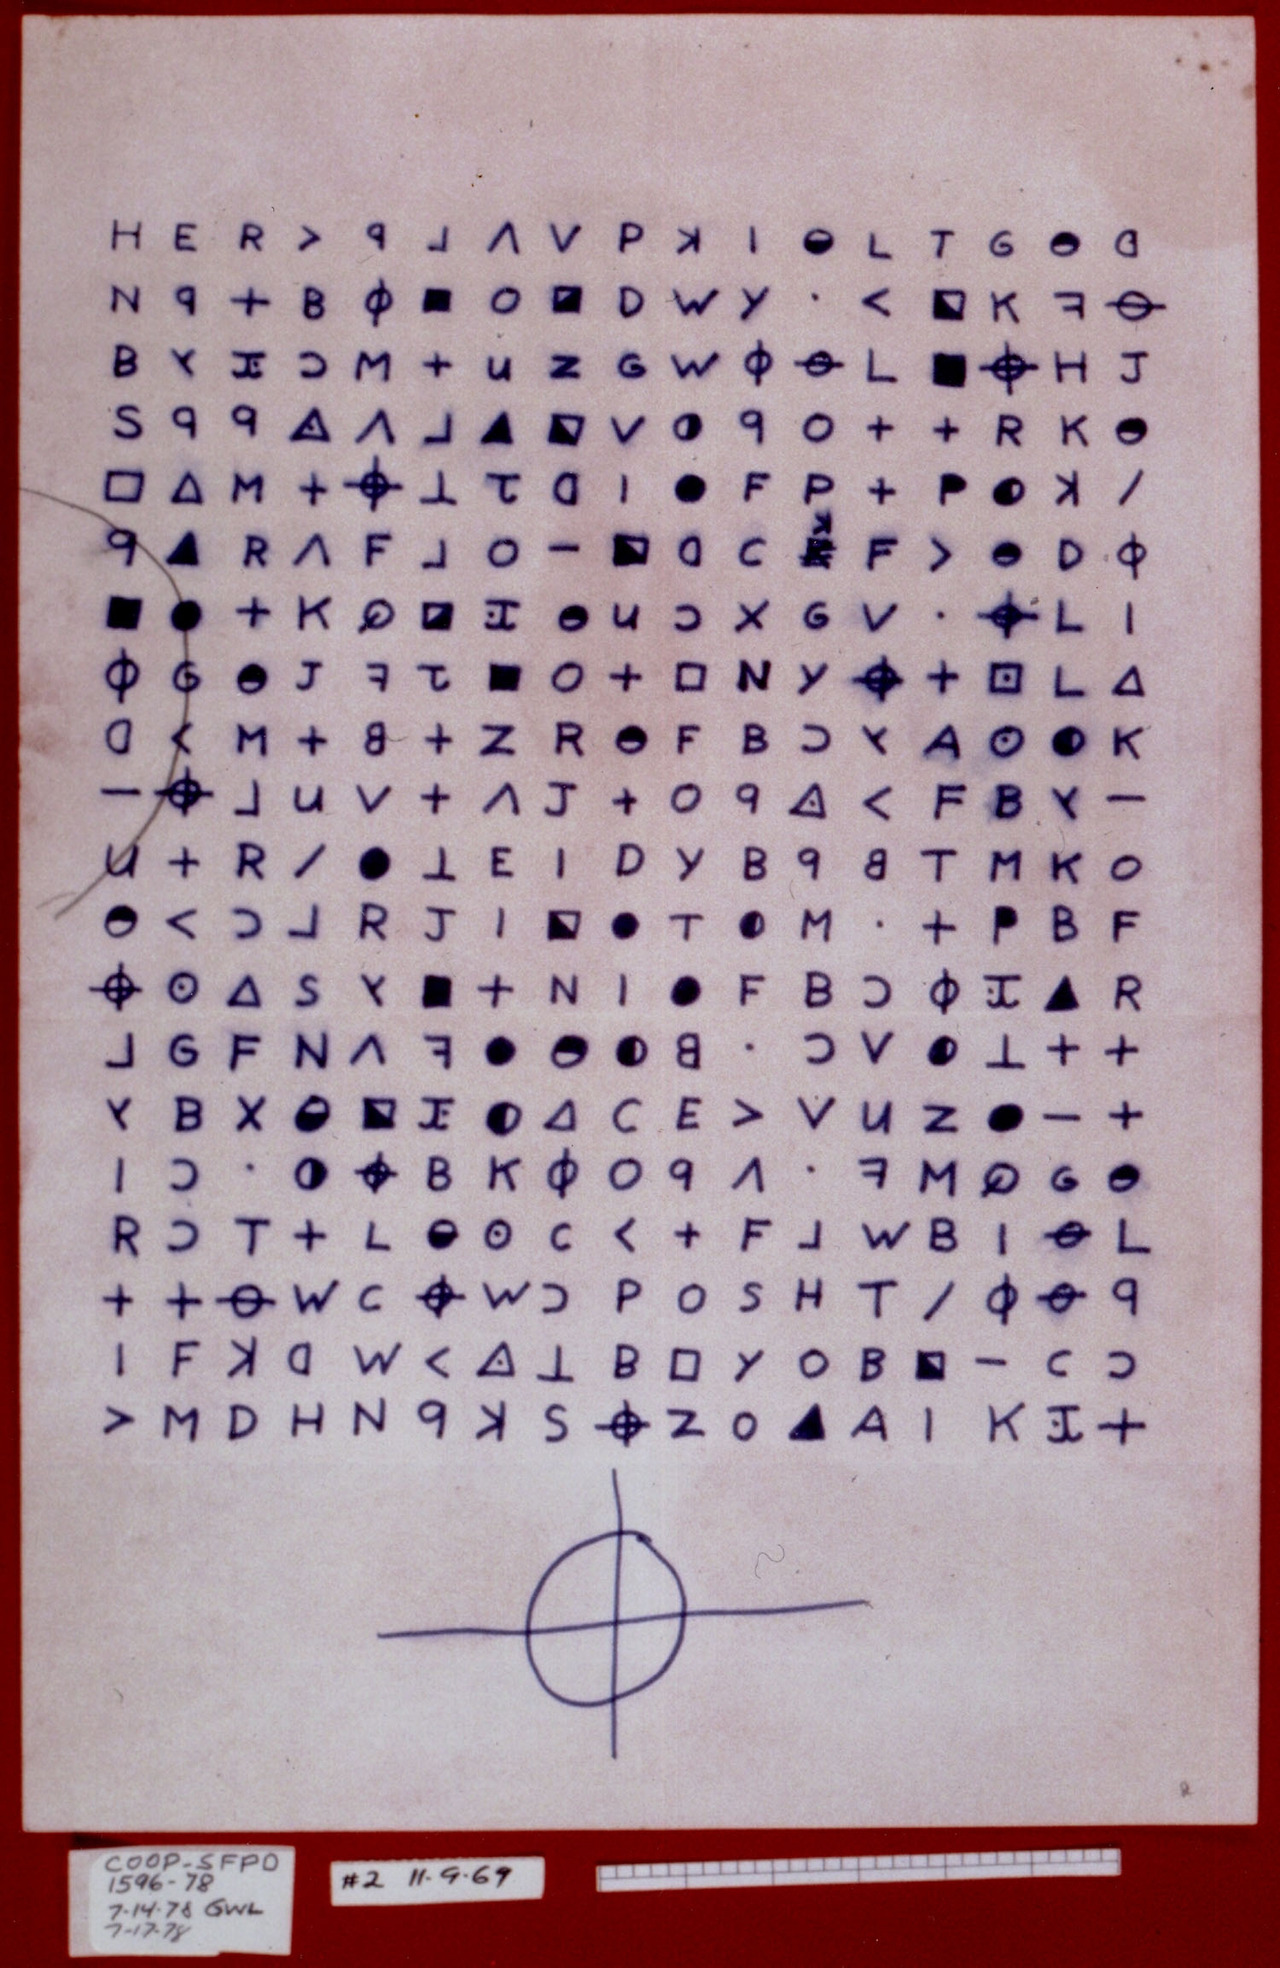 H E R > ꟼ ⅃ Λ V P ꓘ I ◒ L T G ◒ ᗡ
N ꟼ + B ϕ ■ O ◪ D W Y · < ◣ K ꟻ ⊖
B ⅄ I Ɔ M + U Z G W ϕ ⊖ L ■ ⌖ H J
S ꟼ ꟼ ◬ Λ ⅃ ▲ ◣ V ◑ ꟼ O + + R K ◒
□ △ M + ⌖ ⊥ τ ᗡ I ● F P + P ◑ ꓘ /
ꟼ ▲ R Λ F ⅃ O − ◣ ᗡ C ꓘ F > ◒ D ϕ
■ ● + K ∅ ◪ I ◒ U Ɔ X G V · ⌖ L I
ϕ G ◒ J ꟻ τ ■ O + □ N Y ⌖ + ⊡ L △
ᗡ < M + 8 + Z R ◒ F B Ɔ ⅄ A ⊙ ◑ K
− ⌖ ⅃ U V + Λ J + O ꟼ ◬ < F B ⅄ −
U + R / ● ⊥ E I D Y B ꟼ 8 T M K O
◒ < Ɔ ⅃ R J I ◣ ● T ◑ M · + P B F
⌖ ⊙ △ S ⅄ ■ + N I ● F B Ɔ ϕ I ▲ R
⅃ G F N Λ ꟻ ● ◒ ◑ 8 · Ɔ V ◑ ⊥ + +
⅄ B X ◒ ◣ I ◑ △ C E > V U Z ● − +
I Ɔ · ◑ ⌖ B K ϕ O ꟼ Λ · ꟻ M ∅ G ◒
R Ɔ T + L ◒ ⊙ C < + F ⅃ W B I ⊖ L
+ + ⊖ W C ⌖ W Ɔ P O S H T / ϕ ⊖ ꟼ
I F ꓘ ᗡ W < ◬ ⊥ B □ Y O B ◣ − C Ɔ
> M D H N ꟼ ꓘ S ⌖ Z O ▲ A I K I +
COOP-SFPD
1596-78
7-14-78 GWL
7-17-78
#2 11-9-69